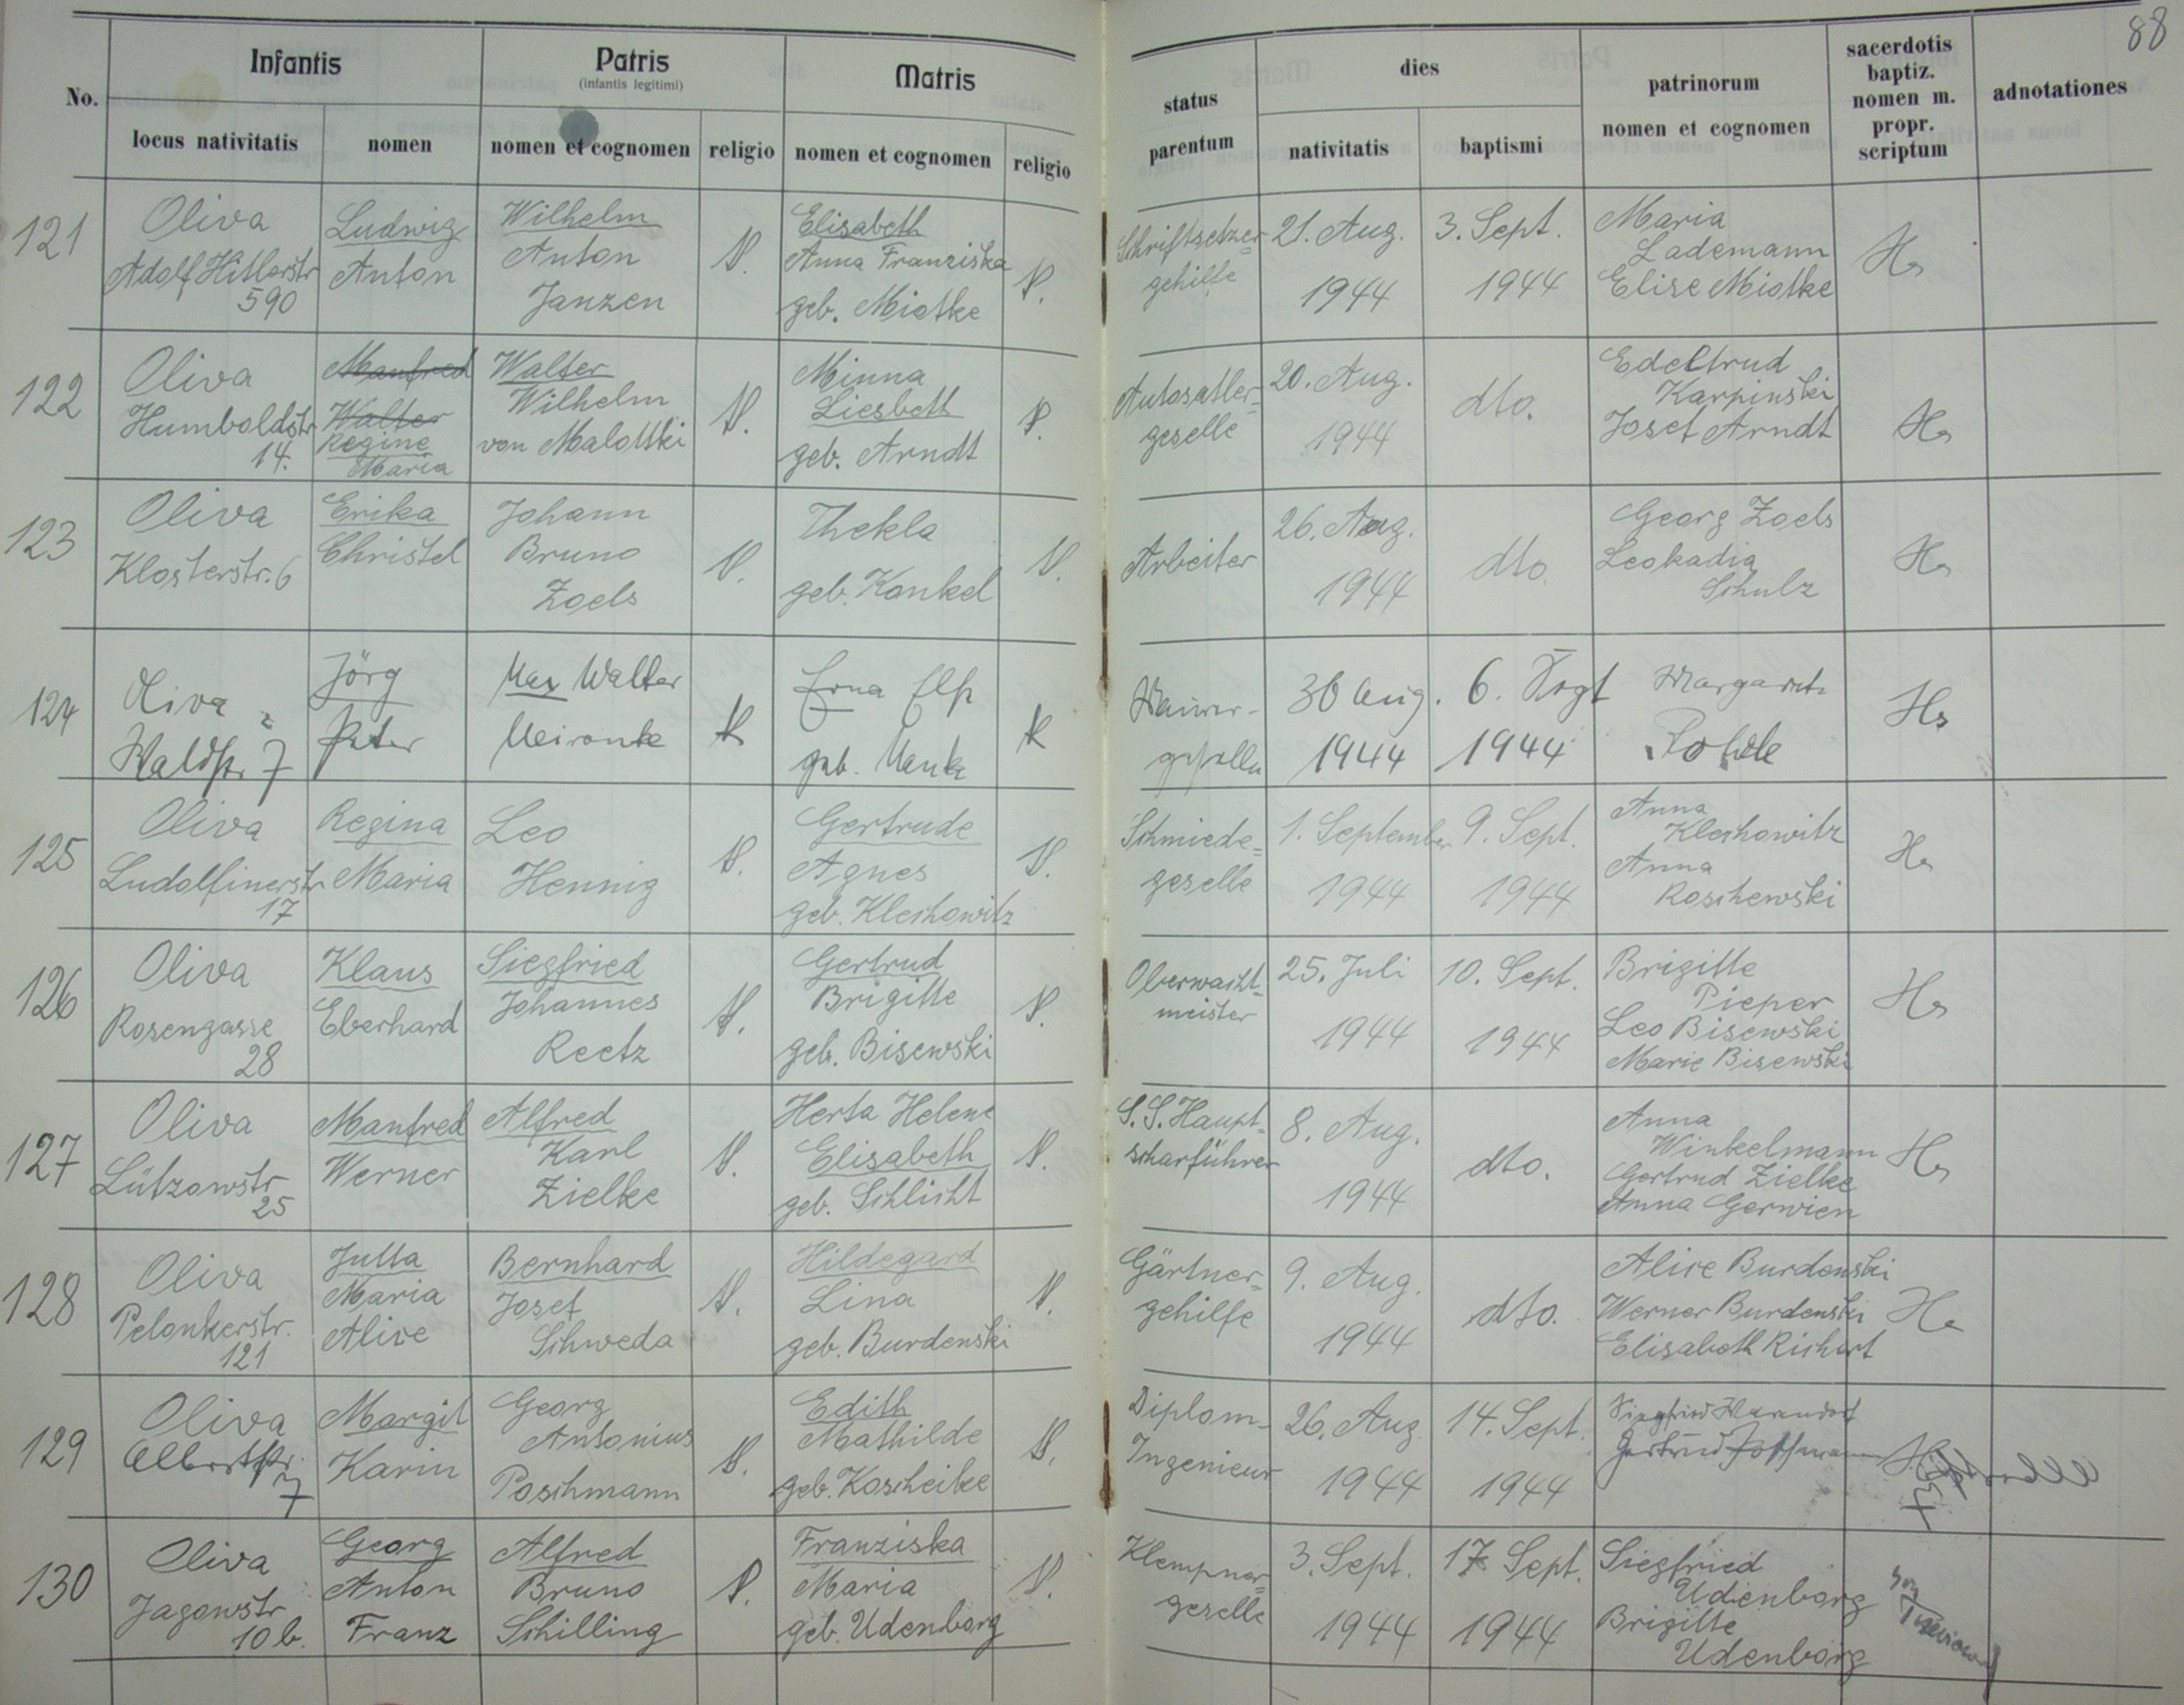 88
No.
Infantis
locus nativitatis
nomen
Patris
(infantis legitimi)
nomen et cognomen
religio
Matris
nomen et cognomen
religio
status
parentum
dies
nativitatis
baptismi
patrinorum
nomen et cognomen
sacerdotis
baptiz.
nomen m.
propr.
scriptum
adnotationes
121
Oliva
Adolf Hitlerstr
590
Ludwig
Anton
Wilhelm
Anton
Janzen
Elisabeth
Anna Franziska
geb. Miotke
Schriftsetzer=
gehilfe
21. Aug.
1944
3. Sept.
1944
Maria
Lademann
Elise Miotke
122
Oliva
Humboldstr
14.
Manfred
Walter
Regine
Maria
Walter
Wilhelm
von Malottki
Minna
Liesbeth
geb. Arndt
Autosatler=
geselle
20. Aug.
1944
dto.
Edeltrud
Karpinski
Josef Arndt
123
Oliva
Klosterstr. 6
Erika
Christel
Johann
Bruno
Zoels
Thekla
geb. Konkel
Arbeiter
26. Aug.
1944
dto.
Georg Zoels
Leokadia
Schulz
124
Oliva
Waldstr. 7
Jörg
Peter
Max Walter
Meironke
k
Erna
geb.
k
30 Aug.
1944
6. Sept
1944
125
Oliva
Ludolfinerstr
17
Regina
Maria
Leo
Hennig
Gertrude
Agnes
geb. Klechowitz
Schmiede=
geselle
1. September
1944
9. Sept.
1944
Anna
Klechowitz
Anna
Roschewski
126
Oliva
Rosengasse
28
Klaus
Eberhard
Siegfried
Johannes
Reetz
Gertrud
Brigitte
geb. Bisewski
Oberwacht=
meister
25. Juli
1944
10. Sept.
1944
Brigitte
Pieper
Leo Bisewski
Marie Bisewski
127
Oliva
Lützowstr
25
Manfred
Werner
Alfred
Karl
Zielke
Herta Helene
Elisabeth
geb. Schlicht
S.S. Haupt=
scharführer
8. Aug.
1944
dto.
Anna
Winkelmann
Gertrud Zielke
Anna Gerwien
128
Oliva
Pelonkerstr.
121
Jutta
Maria
Alice
Bernhard
Josef
Schweda
Hildegard
Lina
geb. Burdenski
Gärtner=
gehilfe
9. Aug.
1944
dto.
Alice Burdenski
Werner Burdenski
Elisabeth Richert
129
Oliva
Albertstr.
7
Margit
Karin
Georg
Antonius
Poschmann
Edith
Mathilde
geb. Koscheike
Diplom-
Ingenieur
26. Aug
1944
14. Sept.
1944
130
Oliva
Jagowstr
10 b.
Georg
Anton
Franz
Alfred
Bruno
Schilling
Franziska
Maria
geb. Udenborg
Klempner=
geselle
3. Sept.
1944
17. Sept.
1944
Siegfried
Udenborg
Brigitte
Udenborg